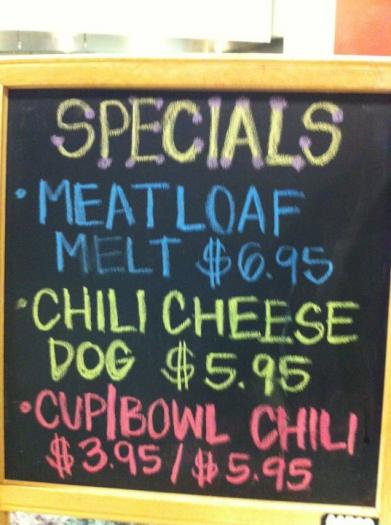 SPECIALS
• MEATLOAF
MELT $6.95
• CHILI CHEESE
DOG $5.95
• CUP/BOWL CHILI
$3.95/$5.95